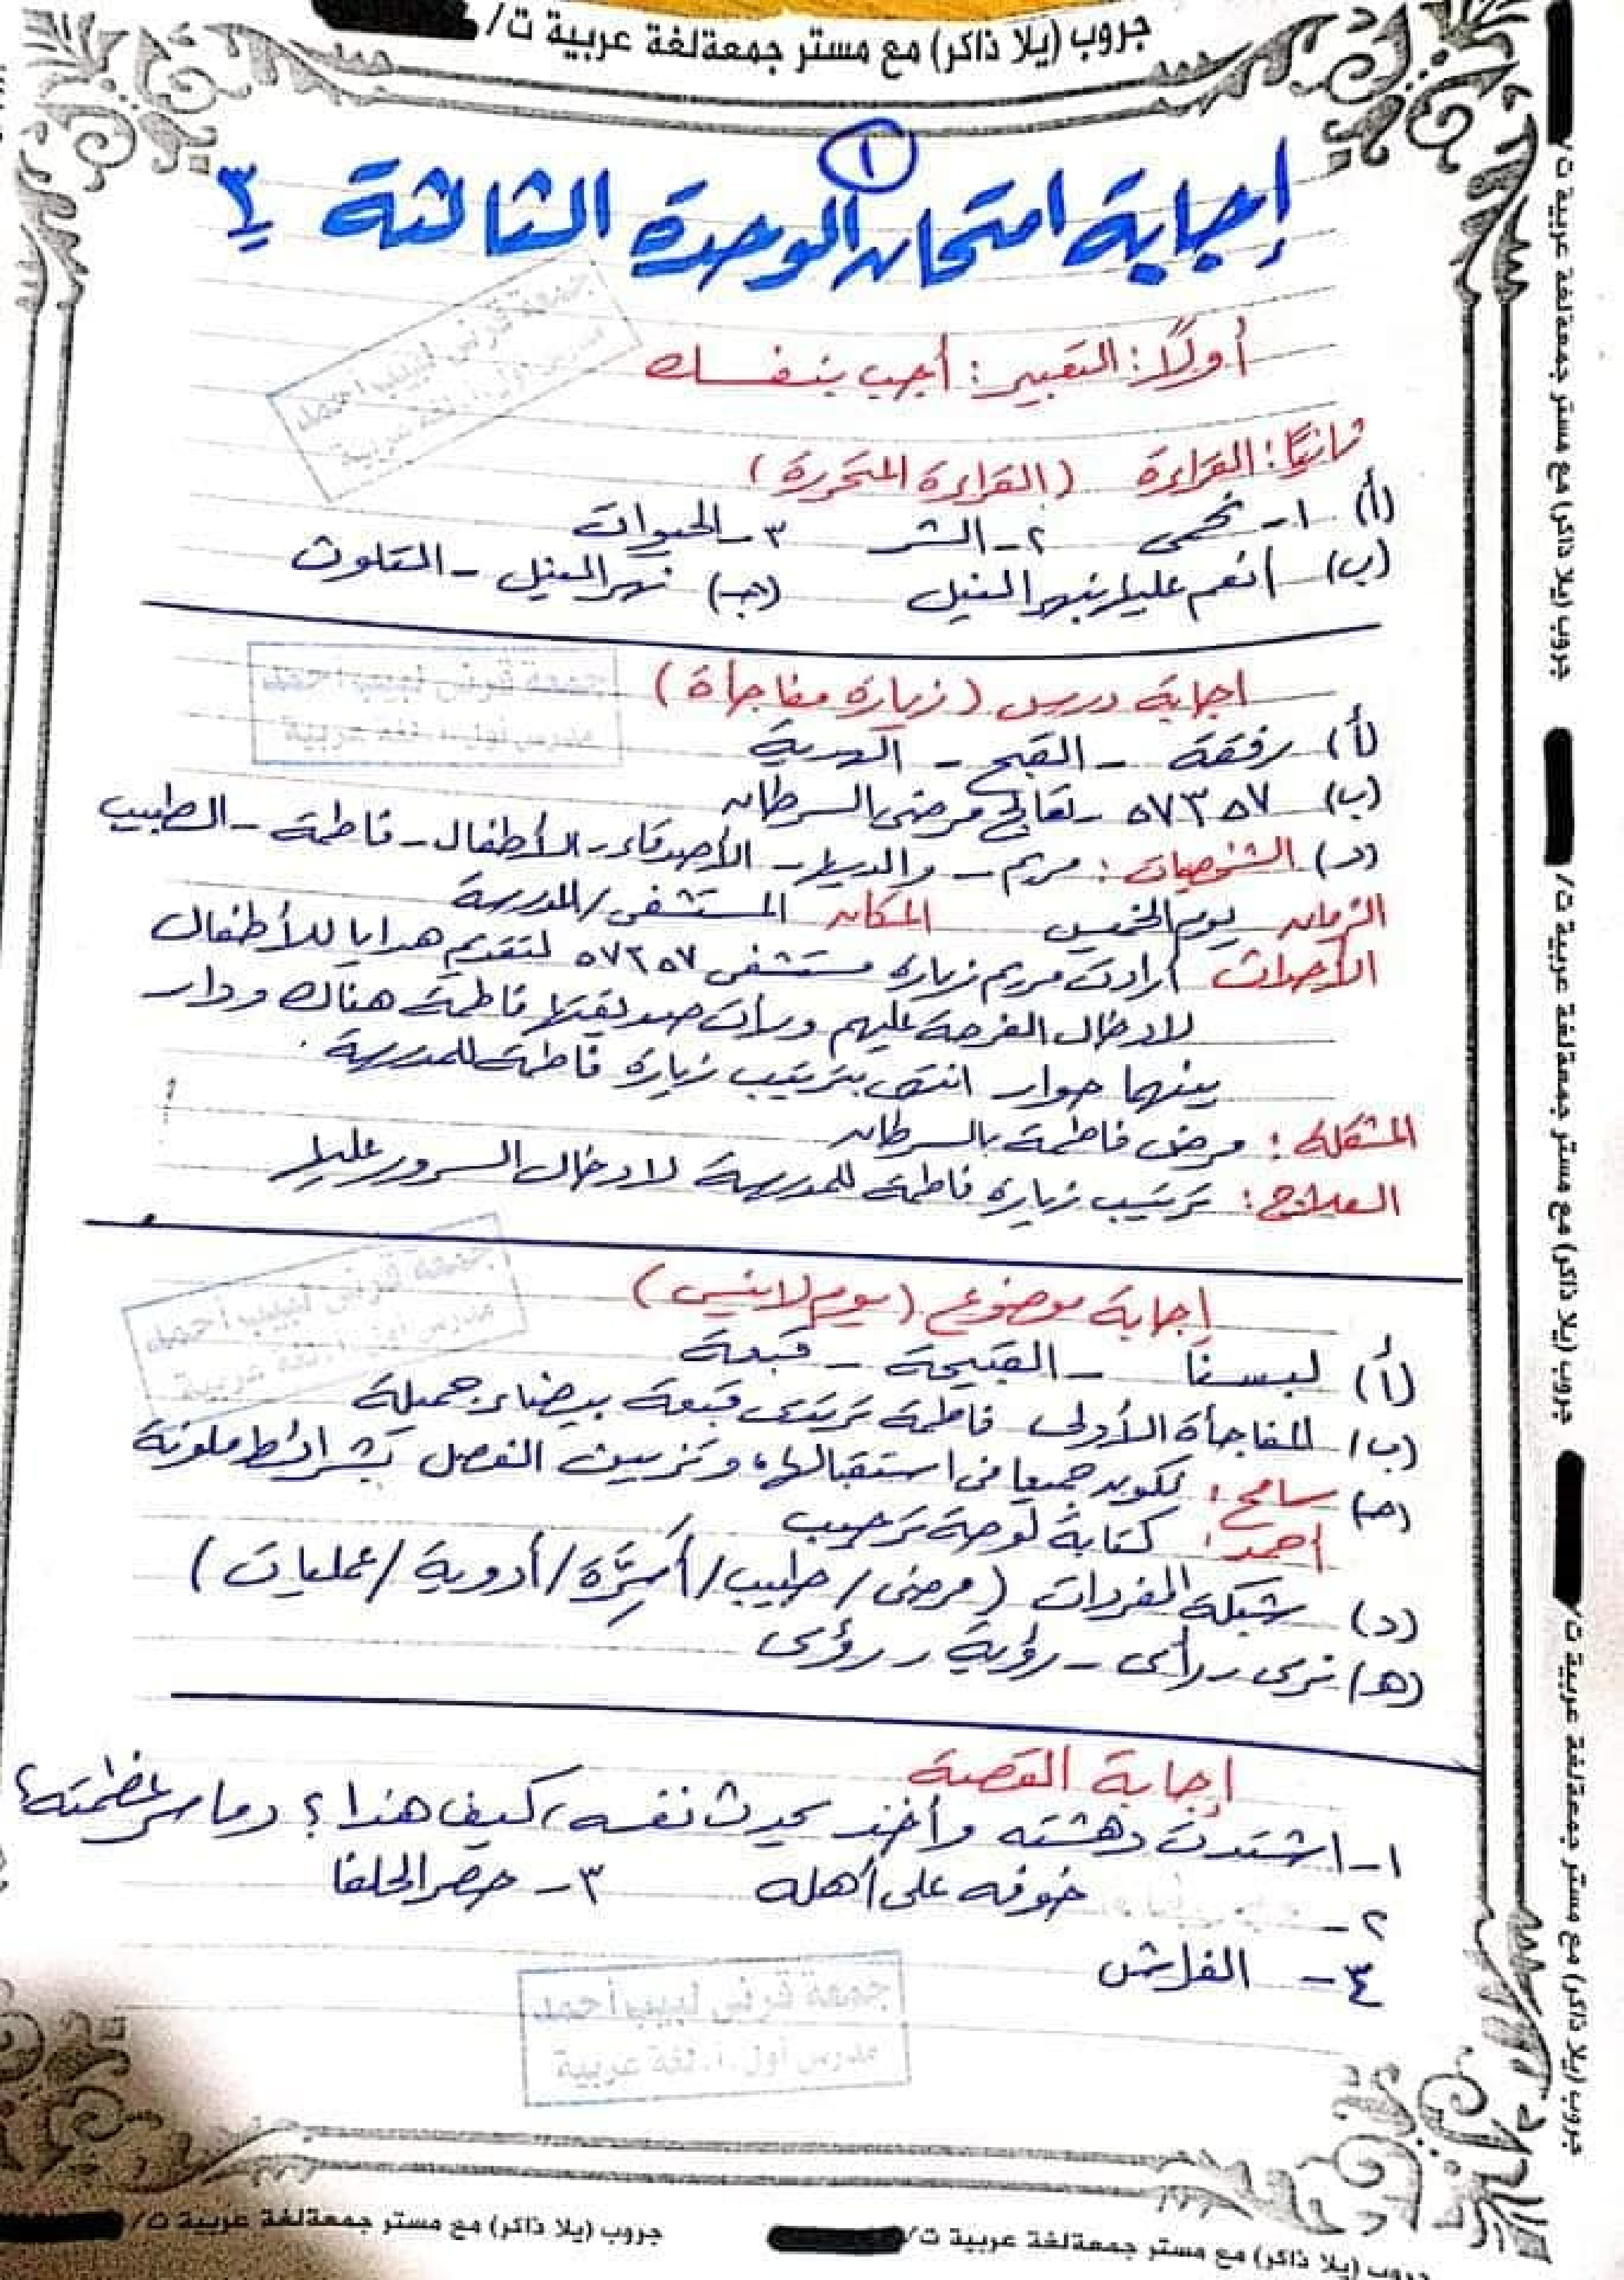 جروب (يلا ذاكر) مع مستر جمعة لغة عربية ت/
١
إجابة امتحان الوحدة الثالثة ٣
أولاً: التعبير: أجب بنفسك
ثانيًا: القراءة (القراءة المتحررة)
(أ) ١- نحمى ٢- الشر ٣- الحيوان
(ب) أنعم علينا بنهر النيل (جـ) نهر النيل - التلوث
اجابة درس (زيارة مفاجأة)
(أ) رفقة - القبح - الهدية
(ب) ٥٧٣٥٧ - تعالج مرضى السرطان
(د) الشخصيات: مريم - والديها - الأصدقاء - الأطفال - فاطمة - الطبيب
الزمان يوم الخميس المكان المستشفى / المدرسة
الأحداث أرادت مريم زيارة مستشفى ٥٧٣٥٧ لتقديم هدايا للأطفال
لادخال الفرحة عليهم ورأت صديقتها فاطمة هناك ودار
بينهما حوار انتهى بترتيب زيارة فاطمة للمدرسة.
المشكلة: مرض فاطمة بالسرطان
العلاج: ترتيب زيارة فاطمة للمدرسة لادخال السرور عليها
إجابة موضوع (يوم لا ينسى)
(أ) لبسنا - القبيحة - قبعة
(ب) المفاجأة الأولى فاطمة ترتدى قبعة بيضاء جميلة
(حـ) سامح: نكون جميعا فى استقبالها، وتزيين الفصل بشرائط ملونة
أحمد: كتابة لوحة ترحيب
(د) شبكة المفردات (مرضى / طبيب / أسِرَّة / أدوية / عمليات)
(هـ) نرى - رأى - رؤية - رؤى
إجابة القصة
١- اشتدت دهشته وأخذ يحدث نفسه، كيف هذا؟ وما سر عظمته؟
٢- خوفه على أهله ٣- حصر الحلفا
٤- الفراش
جمعة قرنى لبيب أحمد
مدرس أول أ. لغة عربية
جروب (يلا ذاكر) مع مستر جمعة لغة عربية ت/
جروب (يلا ذاكر) مع مستر جمعة لغة عربية ت/
جروب (يلا ذاكر) مع مستر جمعة لغة عربية ت/
جروب (يلا ذاكر) مع مستر جمعة لغة عربية ت/
جروب (يلا ذاكر) مع مستر جمعة لغة عربية ت/